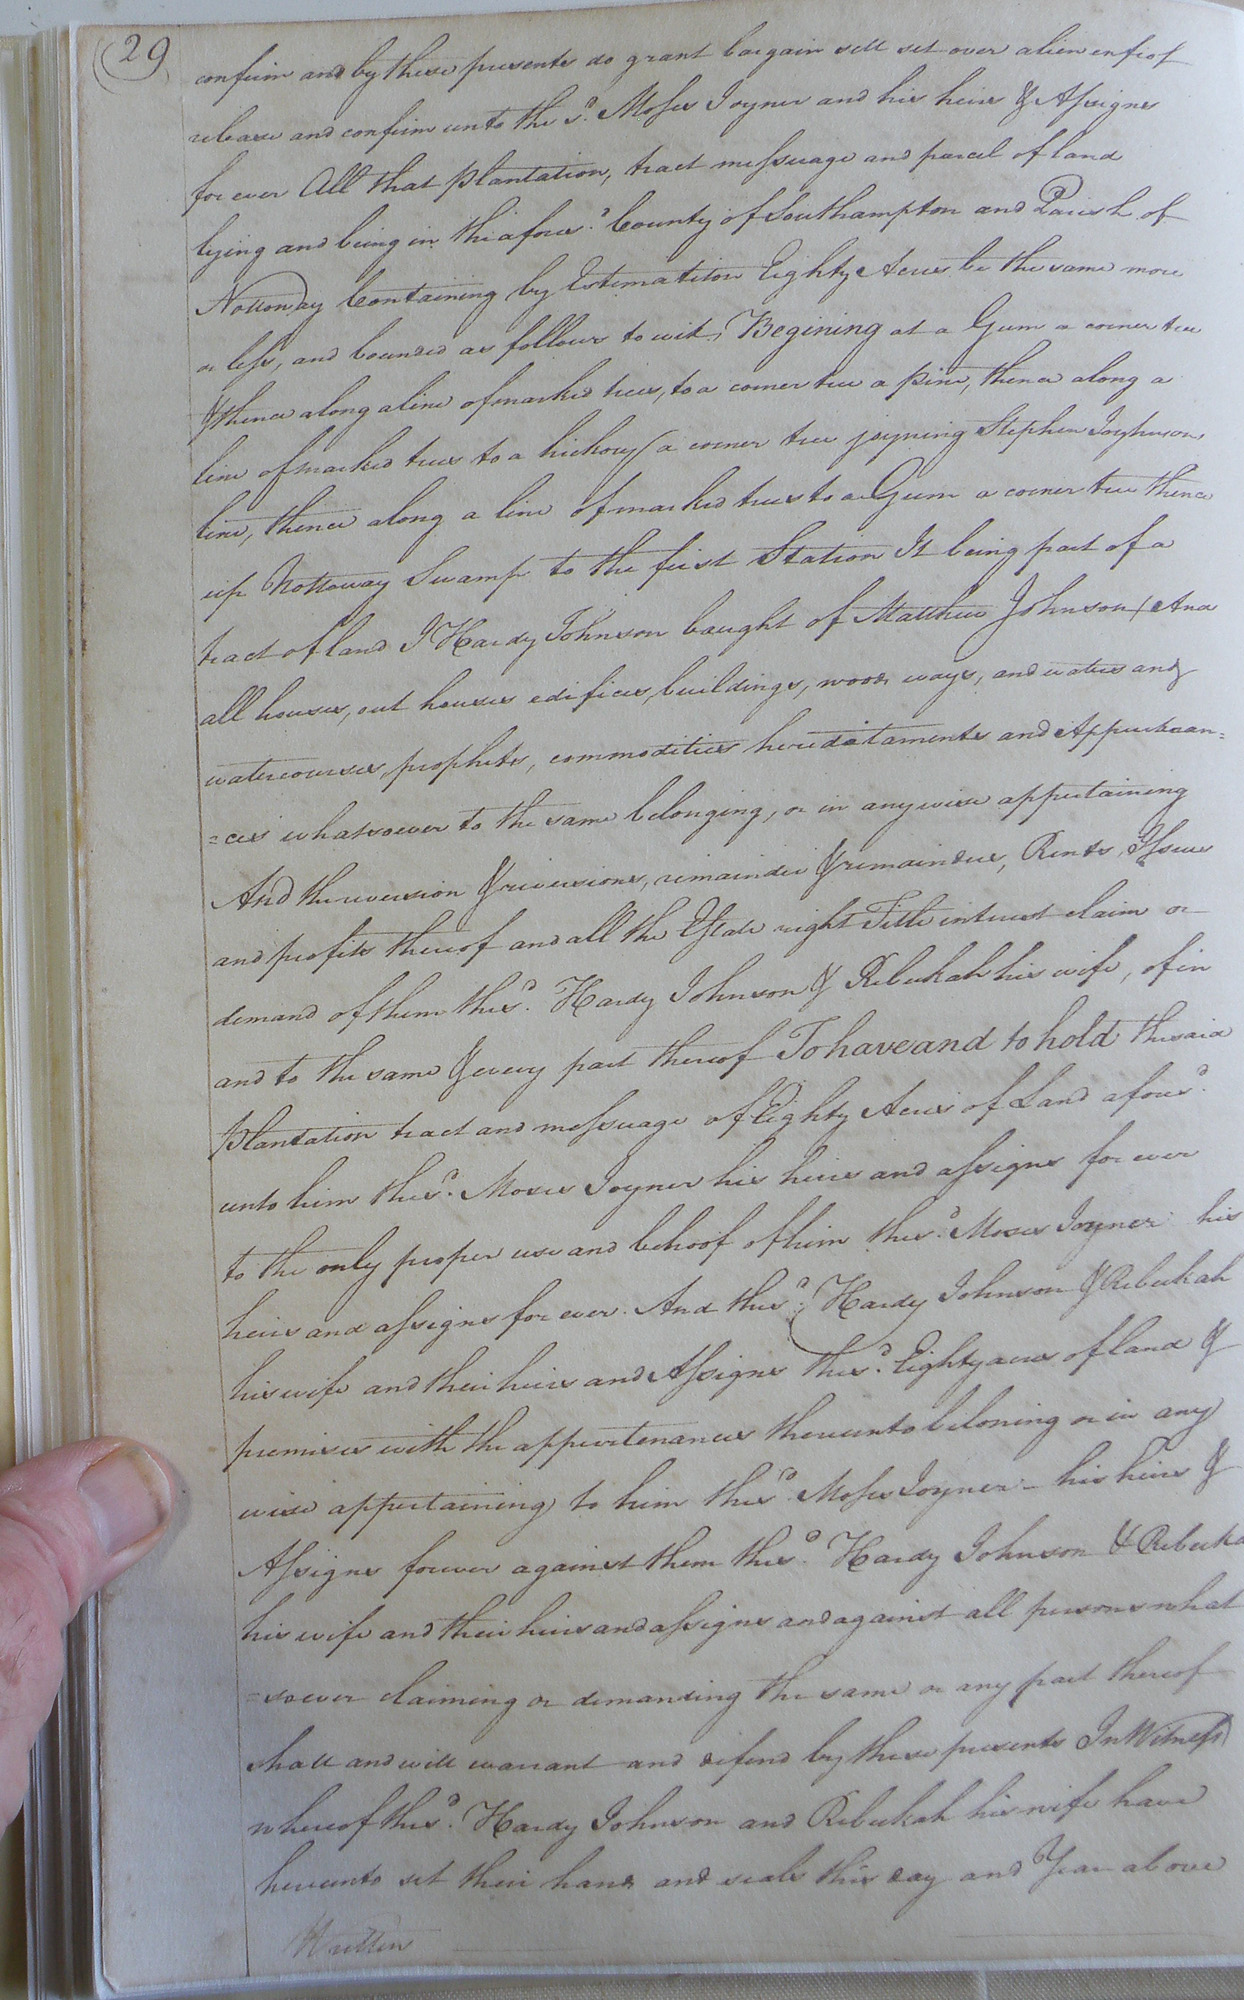 29
confirm and by these presents do grant bargain sell set over alien enfeof
release and confirm unto the sd. Moses Joyner and his heirs & Assigns
for ever All that plantation, tract messuage and parcel of land
lying and being in the afores.d County of Southampton and Parish of
Nottoway Containing by Estimation Eighty Acres be the same more
or less, and bounded as follows to wit, Begining at a Gum a corner tree
& thence along a line of marked trees, to a corner tree a pine, thence along a
line of marked trees to a hickory a corner tree joyning Stephen
line, thence along a line of marked trees to a Gum a corner tree thence
up Nottoway Swamp to the first Station It being part of a
tract of land I Hardy Johnson baught of Matthew Johnson, And
all houses, out houses edifices, buildings, woods ways, and waters and
watercourses, prophets, commodities hereditaments and Appurtean=
=ces whatsoever to the same belonging, or in anywise appertaining
And the reversion & reversions, remainder & remainders, Rents, Issues
and profits thereof and all the Estate right Title interest claim or
demand of them the sd. Hardy Johnson & Rebekah his wife, of in
and to the same & every part thereof To have and to hold the said
plantation tract and messuage of Eighty Acres of Land afores.d
unto him the sd. Moses Joyner his heirs and assigns for ever
to the only proper use and behoof of him the sd. Moses Joyner his
heirs and assigns for ever. And the sd. Hardy Johnson & Rebekah
his wife and their heirs and Assigns the sd. Eighty acres of land &
premises with the appurtenances thereunto beloning or in any
wise appertaining to him the sd. Moses Joyner - his heirs &
Assigns forever against them the sd. Hardy Johnson & Rebeka
his wife and their heirs and assigns and against all persons what
=soever claiming or demanding the same or any part thereof
shall and will warrant and defend by these presents In Witness
whereof the sd. Hardy Johnson and Rebekah his wife have
hereunto set their hands and seals this day and Year above
Written